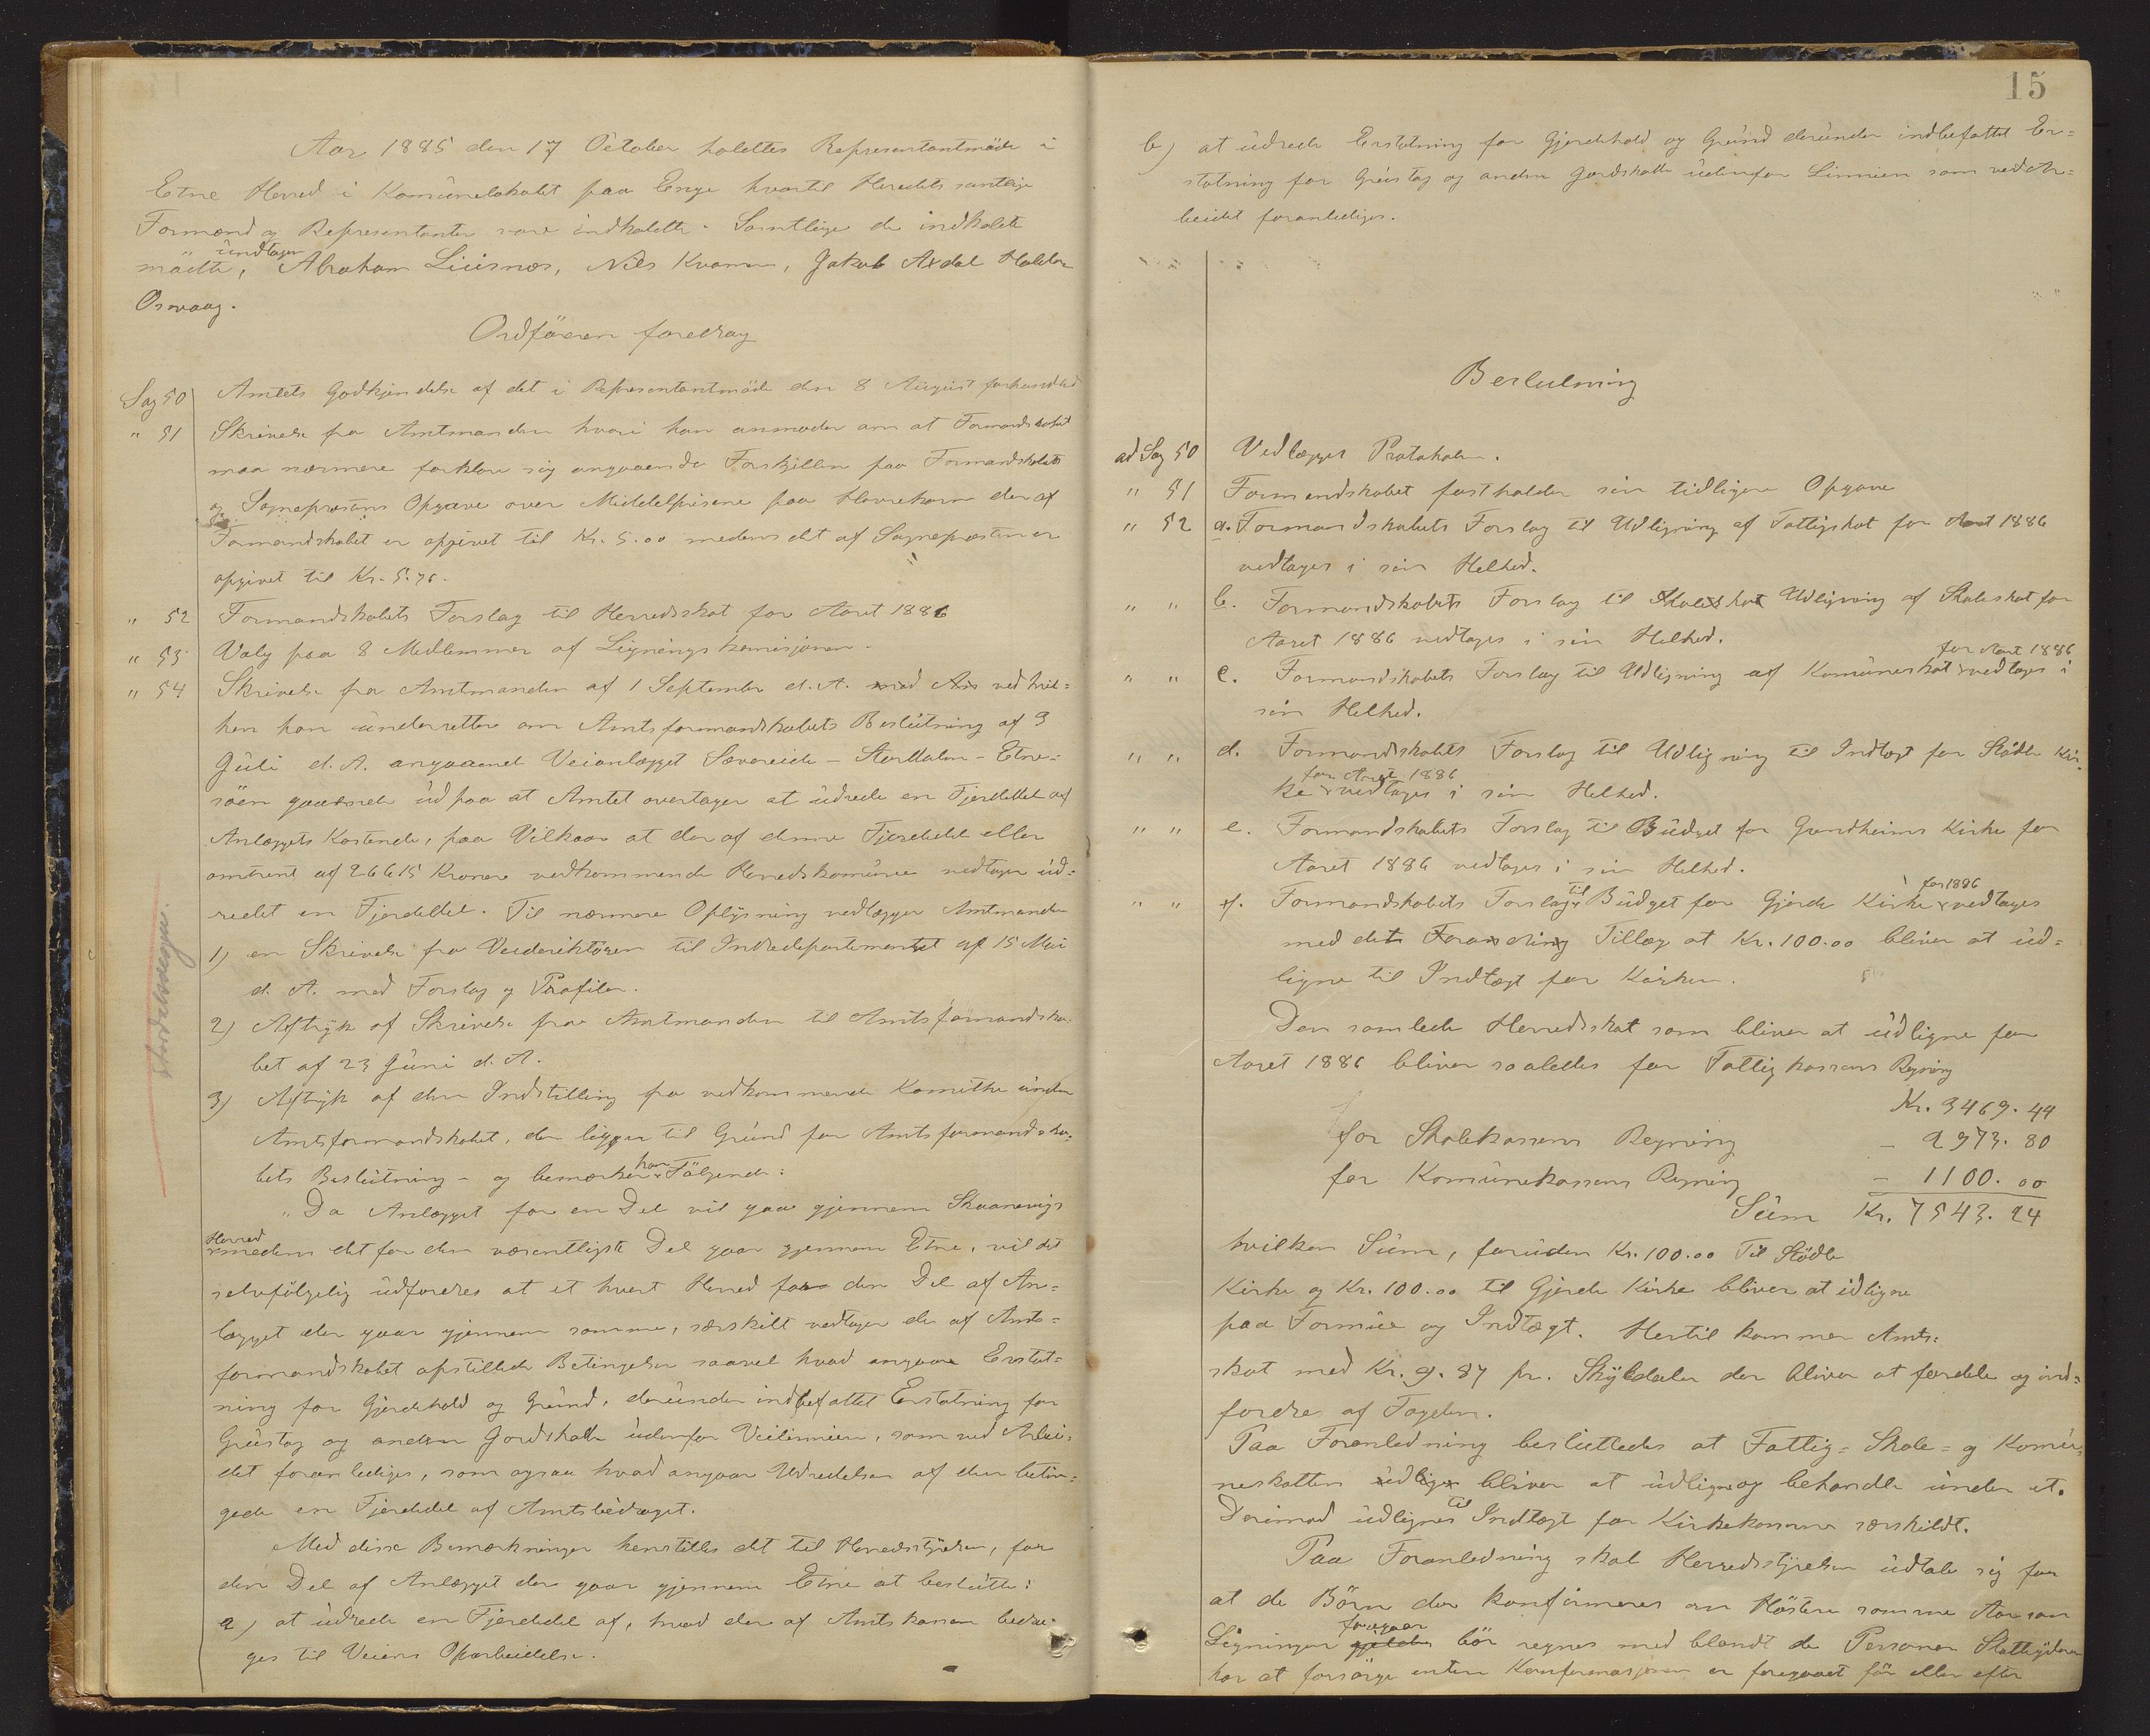 Aar 1885 den 17 October holdttes Repræsentantmöde i
Etne Herred i Komünelokalet paa Enge hvortil Heredets samtlige
Formænd og Repræsentanter vare indkaldte. Samtlige de indkaldte
mödte, undtagen Abraham Liüsnæs, Nils Kvamme, Jakob Axdal Haldor
Osvaag.
Ordföreren foredrog
Sag 50 Amtets Godkjendelse af det i Repræsentantmöde den 8 August forhandlede
" 51 Skrivelse fra Amtmanden hvori han anmoder om at Formandskabet
maa nærmere forklare sig angaaende Forskjellen paa Formandskabets
og Sognepræstens Opgave over Middelprisene paa Havrekorn der af
Formandskabet er opgivet til Kr. 5.00 medens det af Sognepræsten er
opgivet til Kr. 5.76.
" 52 Formandskabets Forslag til Herredsskat for Aaret 1886
" 53 Valg paa 8 Medlemmer af Ligningskomisjonen.
" 54 Skrivelse fra Amtmanden af 1 September d. A. ved hvil=
ken han ünderretter om Amtsformandskabets Beslütning af 3
Jüli d. A. angaaende Veianlægget Sævereide - Stordalen - Etne=
söen gaaende üd paa at Amtet overtager at üdrede en Fjerdedel af
Anlæggets Kostende, paa Vilkaar at der af denne Fjerdedel eller
omtrent af 26615 Kroner vedkommende Herredskomüne vedtager üd=
redet en Fjerdedel. Til nærmere Oplysning vedlægger Amtmanden
1) en Skrivelse fra Veidirektören til Indredepartementet af 15 Mai
d. A. med Forslag og Profiler.
2) Aftryk af Skrivelse fra Amtmanden til Amtsformandska=
bet af 23 Jüni d. A.
3) Aftryk af den Indstilling fra vedkommende Komitee ünder
Amtsformandskabet, der ligger til Gründ for Amtsformandska=
bets Beslütning - og bemærker han Fölgende:
"Da Anlægget for en Del vil gaa gjennem Skaanevigs
Herred medens det for den væsentligste Del gaar gjennem Etne, vil det
selvfölgelig üdfordres at et hvert Herred for den Del af An=
lægget der gaar gjennem samme, særskilt vedtager de af Amts=
formandskabet opstillede Betingelser saavel hvad angaar Erstat=
ning for Gjerdehold og Gründ, deründer indbefattet Erstatning for
Grüstag og anden Jordskade üdenfor Veilinnien, som ved Arbei=
det foranlediges, som ogsaa hvad angaar Udredelsen af den betin=
gede en Fjerdedel af Amtsbidraget.
Med disse Bemærkninger henstilles det til Herredsstyrelsen, for
den Del af Anlægget der gaar gjennem Etne at beslütte:
a) at üdrede en Fjerdedel af, hvad der af Amtskassen bedra=
ges til Veiens Oparbeidelse.
Stordalsvegen.
15
b) at üdrede Erstatning for Gjerdehold og Gründ deründer indbefattet Er=
statning for Grüstag og anden Jordskade üdenfor Linnien som ved Ar=
beidet foranlediges.
Beslutning
ad Sag 50 Vedlægges Protokolen.
" 51 Formandskabet fastholder sin tidligere Opgave
" 52 a. Formandskabets Forslag til Udligning af Fattigskat for Aaret 1886
vedtages i sin Helhed.
" " b. Formandskabets Forslag til Skoleskat Udligning af Skoleskat for
Aaret 1886 vedtages i sin Helhed.
" " c. Formandskabets Forslag til Udligning af Komüneskat for Aaret 1886 vedtages i
sin Helhed.
" " d. Formandskabets Forslag til Udligning til Indtægt for Städle Kir=
ke for Aaret 1886 vedtages i sin Helhed.
" " e. Formandskabets Forslag til Büdget for Grindheims Kirke for
Aaret 1886 vedtages i sin Helhed.
" " f. Formandskabets Forslag til Büdget for Gjerde Kirke for 1886 vedtages
med det Forandring Tillæg at Kr. 100.00 bliver at üd=
ligne til Indtægt for Kirken.
Den samlede Herredsskat som bliver at üdligne for
Aaret 1886 bliver saaledes for Fattigkassens Regning
Kr. 3469.44
for Skolekassens Regning - 2973.80
for Komünekassens Regning - 1100.00
Süm Kr. 7543.24
hvilken Süm, forüden Kr. 100.00 Til Städle
Kirke og Kr. 100.00 til Gjerde Kirke bliver at üdligne
paa Formüe og Indtægt. Hertil kommer Amts=
skat med Kr. 9.87 pr. Skyldaler der bliver at fordele og ind=
fordre af Fogden.
Paa Foranledning beslüttedes at Fattig= Skole= og Komü=
neskatten üdlignes bliver at üdligne og behandle ünder et.
Derimod üdlignes til Indtægt for Kirkekasserne særskildt.
Paa Foranledning skal Herredsstyrelsen üdtale sig for
at de Börn der konfirmeres om Hösten samme Aar som
Ligningen gjelder foregaar bör regnes med blandt de Personer Skatteyderen
har at forsörge enten Konfirmasjonen er foregaaet för eller efter